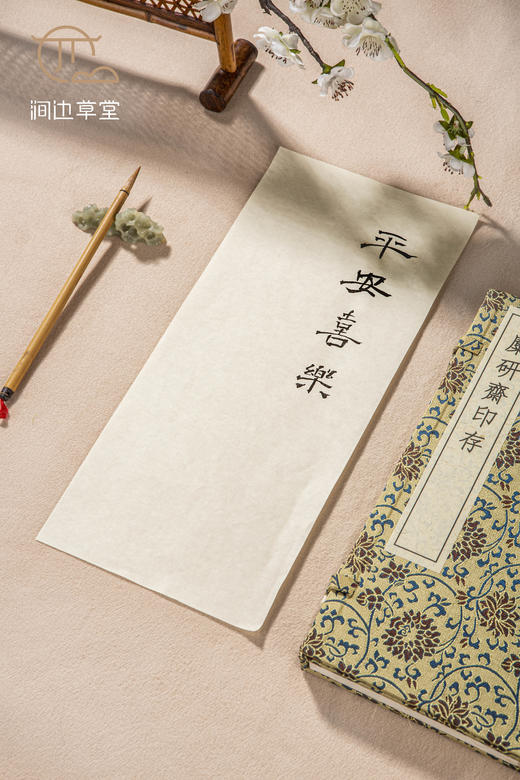 涧边草堂
平安喜樂
研齋印存